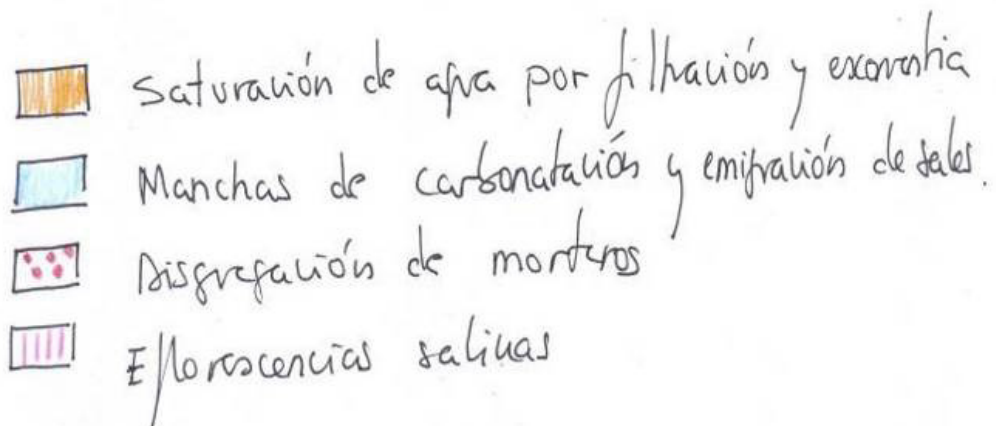 Saturación de agua por filtración y escorrentía
Manchas de carbonatación y emigración de sales.
Disgregación de morteros
Eflorescencias salinas